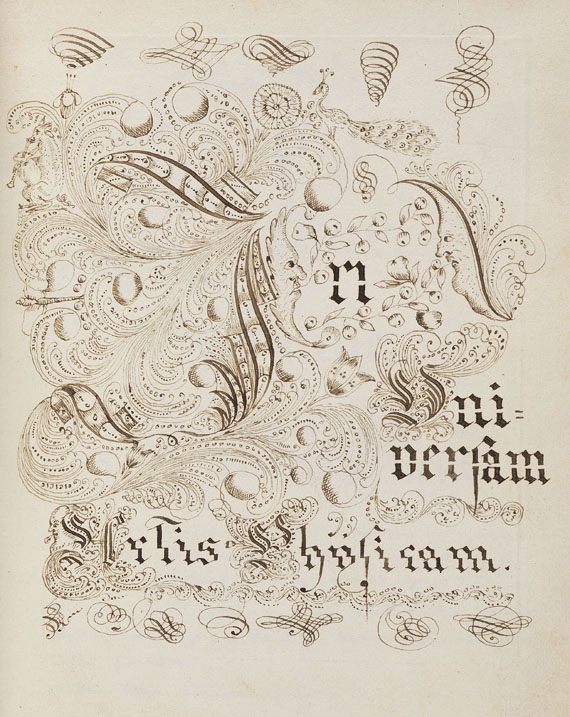 In
Uni=
verſâm
Artis Phÿſicam.